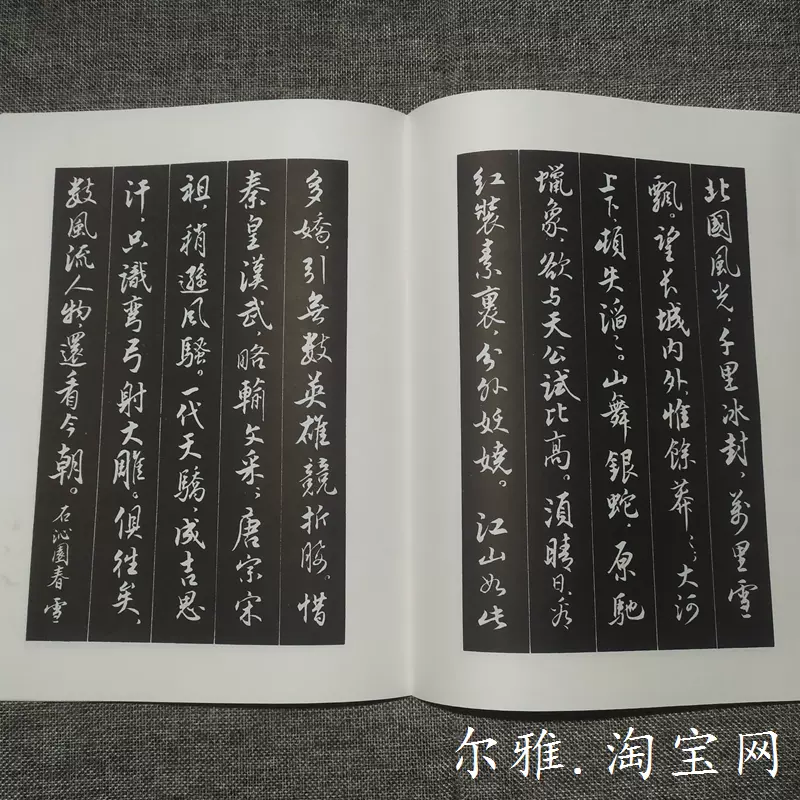 北國風光，千里冰封，萬里雪
飄。望长城内外，惟餘莽〻；大河
上下，頓失滔〻。山舞銀蛇，原馳
蠟象，欲与天公試比高。須晴日，看
紅裝素裹，分外妖嬈。江山如此
多嬌，引無數英雄競折腰。惜
秦皇漢武，略輸文采；唐宗宋
祖，稍遜風騷。一代天驕，成吉思
汗，只識彎弓射大雕。俱往矣，
數風流人物，還看今朝。右沁園春雪
尔雅.淘宝网